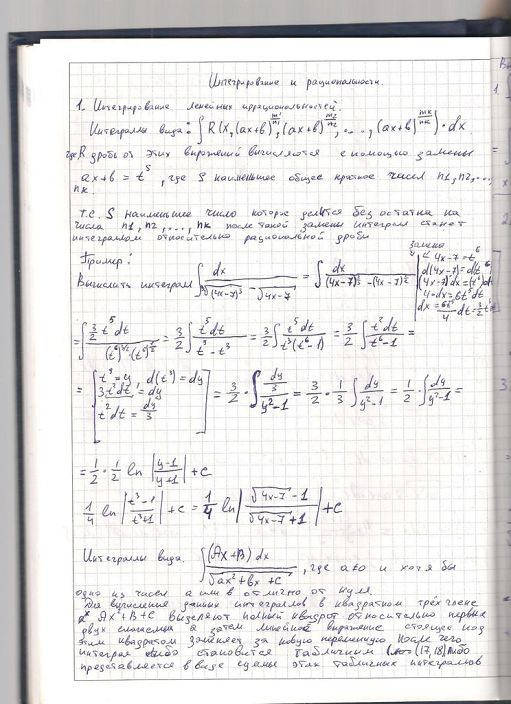 Интегрирование и рациональности.
1. Интегрирование линейных иррациональностей.
Интегралы вида: ∫R(x,(ax+b)^(m1/n1),(ax+b)^(m2/n2),...,(ax+b)^(mк/nк))·dx
где R дробь от этих выражений вычисляется с помощью замены
ax+b = t^S, где S наименьшее общее кратное чисел n1,n2,...,
nк.
т.е. S наименьшее число которое делится без остатка на
числа n1,n2,...,nк после такой замены интеграл станет
интегралом относительно рациональной дроби
Пример:
замена
Вычислить интеграл ∫dx/(√(4x-7)^3 - √4x-7) = ∫dx/((4x-7)^(3/2) - (4x-7)^(1/2))
4x-7=t^6
d(4x-7)=d(t^6)
(4x-7)'dx=(t^6)'dt
4·dx=6t^5dt
dx=6t^5/4 dt=3/2 t^5dt
=∫(3/2 t^5dt)/((t^6)^(3/2)-(t^6)^(1/2)) = 3/2∫t^5dt/(t^9-t^3) = 3/2∫t^5dt/(t^3(t^6-1)) = 3/2∫t^2dt/(t^6-1) =
= [t^3=y, d(t^3)=dy
3t^2dt=dy
t^2dt=dy/3] = 3/2·∫(dy/3)/(y^2-1) = 3/2·1/3∫dy/(y^2-1) = 1/2·∫dy/(y^2-1) =
= 1/2·1/2 ln|(y-1)/(y+1)|+c
1/4 ln|(t^3-1)/(t^3+1)|+c = 1/4 ln|(√4x-7 -1)/(√4x-7 +1)|+c
Интегралы вида. ∫(Ax+B)dx/√(ax^2+bx+c), где a≠0 и хотя бы
одно из чисел a или b отлично от нуля.
Для вычисления данных интегралов в квадратном трёхчлене
Ax+B+C выделяют полный квадрат относительно первых
двух слагаемых а затем линейное выражение стоящее под
этим квадратом заменяет за новую переменную после чего
интеграл либо становится табличным (17,18) либо
представляется в виде суммы этих табличных интегралов